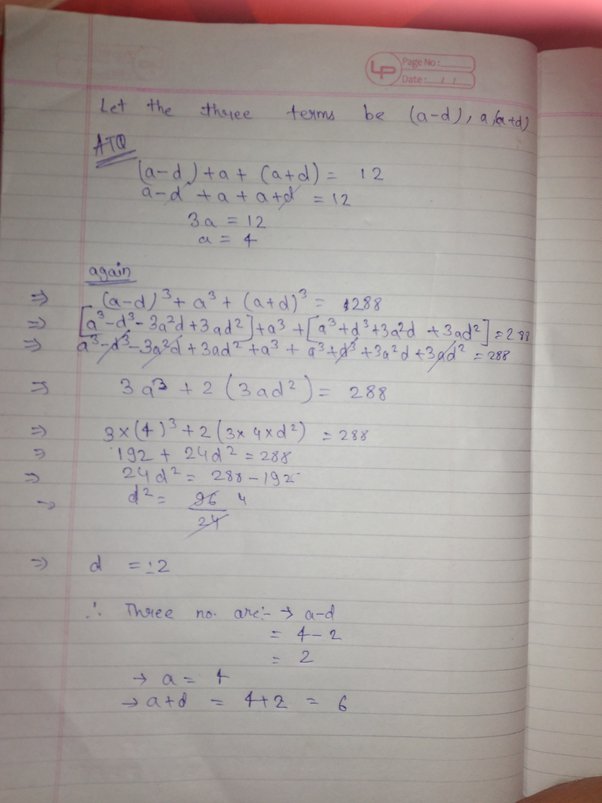 LP
Page No:
Date: / /
Let the three terms be (a-d), a, (a+d)
ATQ
(a-d)+a+(a+d)= 12
a-d+a+a+d=12
3a=12
a=4
again
⇒ (a-d)³+a³+(a+d)³=288
⇒ [a³-d³-3a²d+3ad²]+a³+[a³+d³+3a²d+3ad²]=288
⇒ a³-d³-3a²d+3ad²+a³+a³+d³+3a²d+3ad²=288
⇒ 3a³+2(3ad²)=288
⇒ 3×(4)³+2(3×4×d²)=288
⇒ 192+24d²=288
⇒ 24d²=288-192
⇒ d²= 96 4
24
⇒ d =±2
∴ Three no. are:- → a-d
= 4-2
= 2
→ a= 4
→ a+d = 4+2 = 6